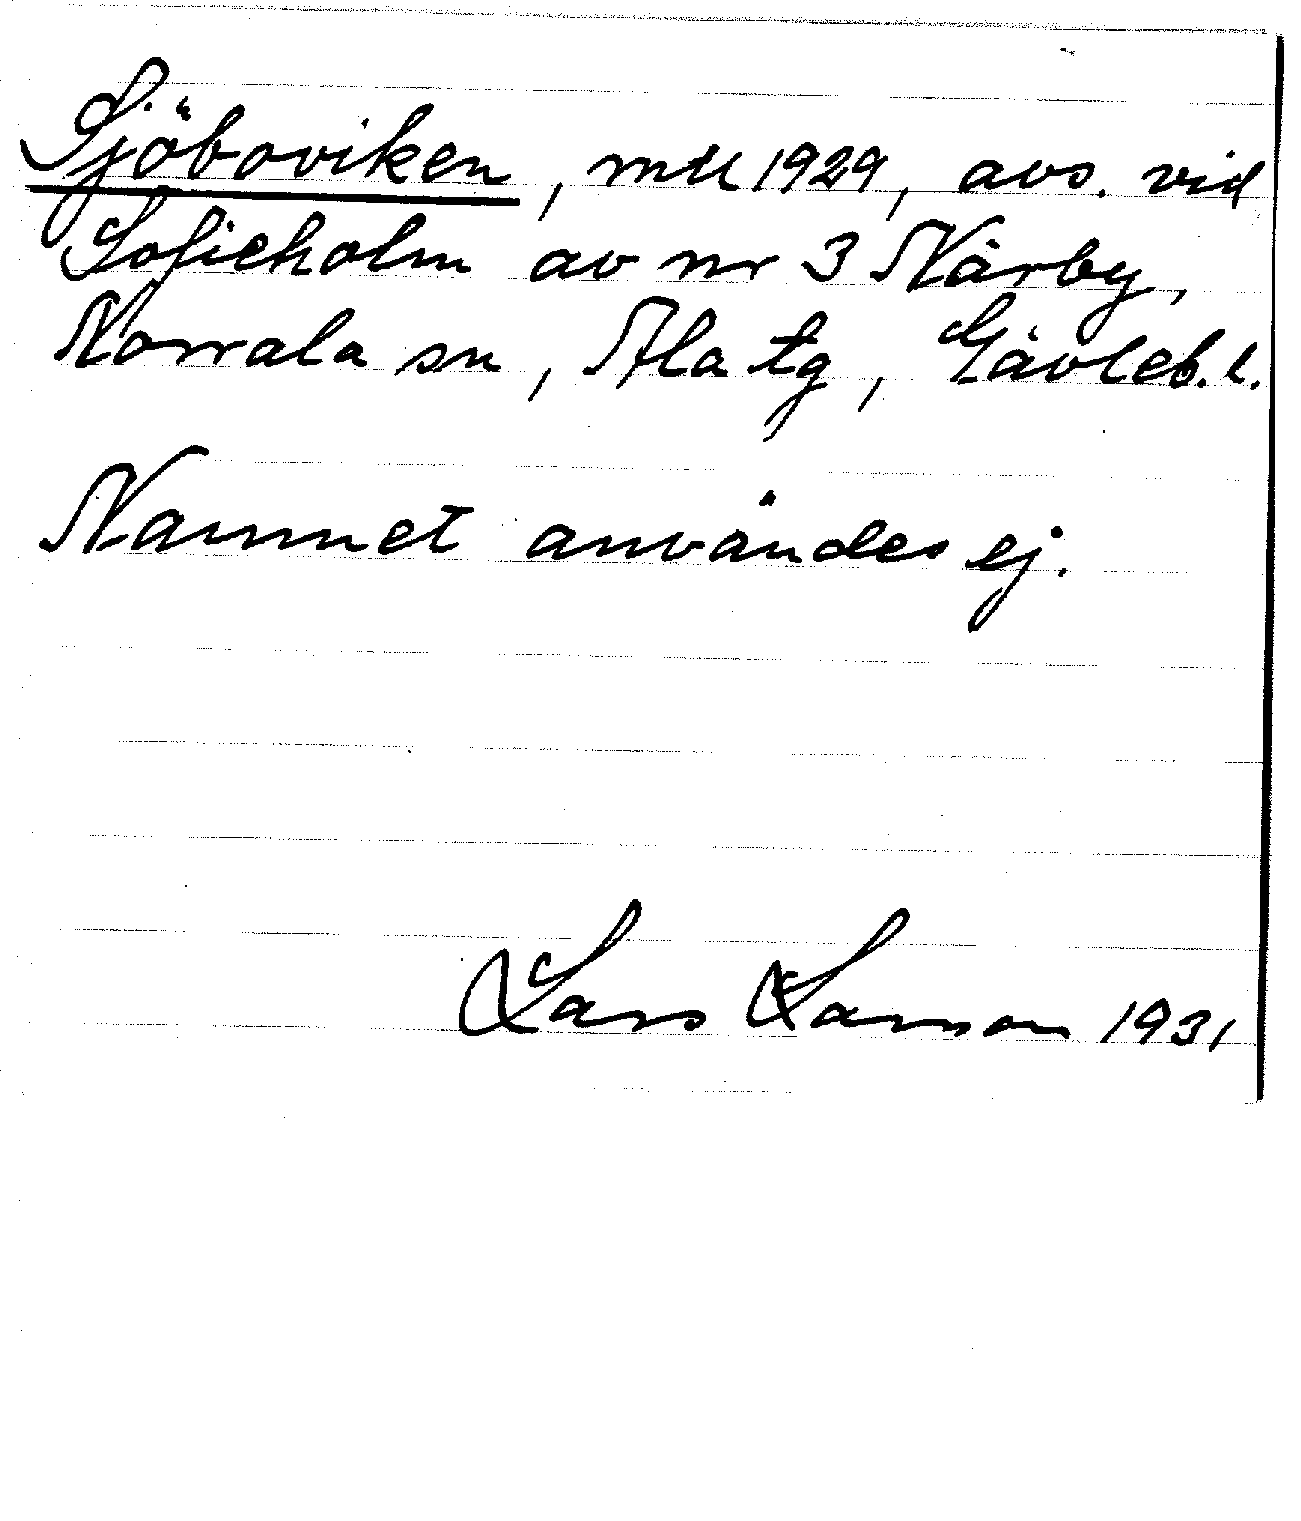 Sjöboviken, mtl 1929, avs. vid
Sofieholm av nr 3 Närby,
Norrala sn, Ala tg, Gävleb. l.
Namnet användes ej.
Lars Larsson 1931